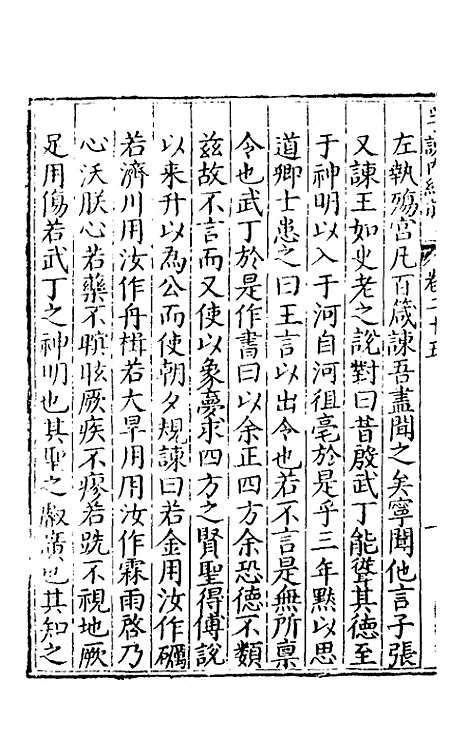 左執殤宮凡百箴諫吾盡聞之矣寧聞他言子張
又諫王如史老之說對曰昔殷武丁能聳其德至
于神明以入于河自河徂亳於是乎三年默以思
道卿士患之曰王言以出令也若不言是無所稟
令也武丁於是作書曰以余正四方余恐德不類
茲故不言而又使以象夢求四方之賢聖得傅說
以来升以為公而使朝夕規諫曰若金用汝作礪
若濟川用汝作舟楫若大旱用用汝作霖雨啓乃
心沃朕心若藥不瞑眩厥疾不瘳若跣不視地厥
足用傷若武丁之神明也其聖之叡廣也其知之
卷二十五